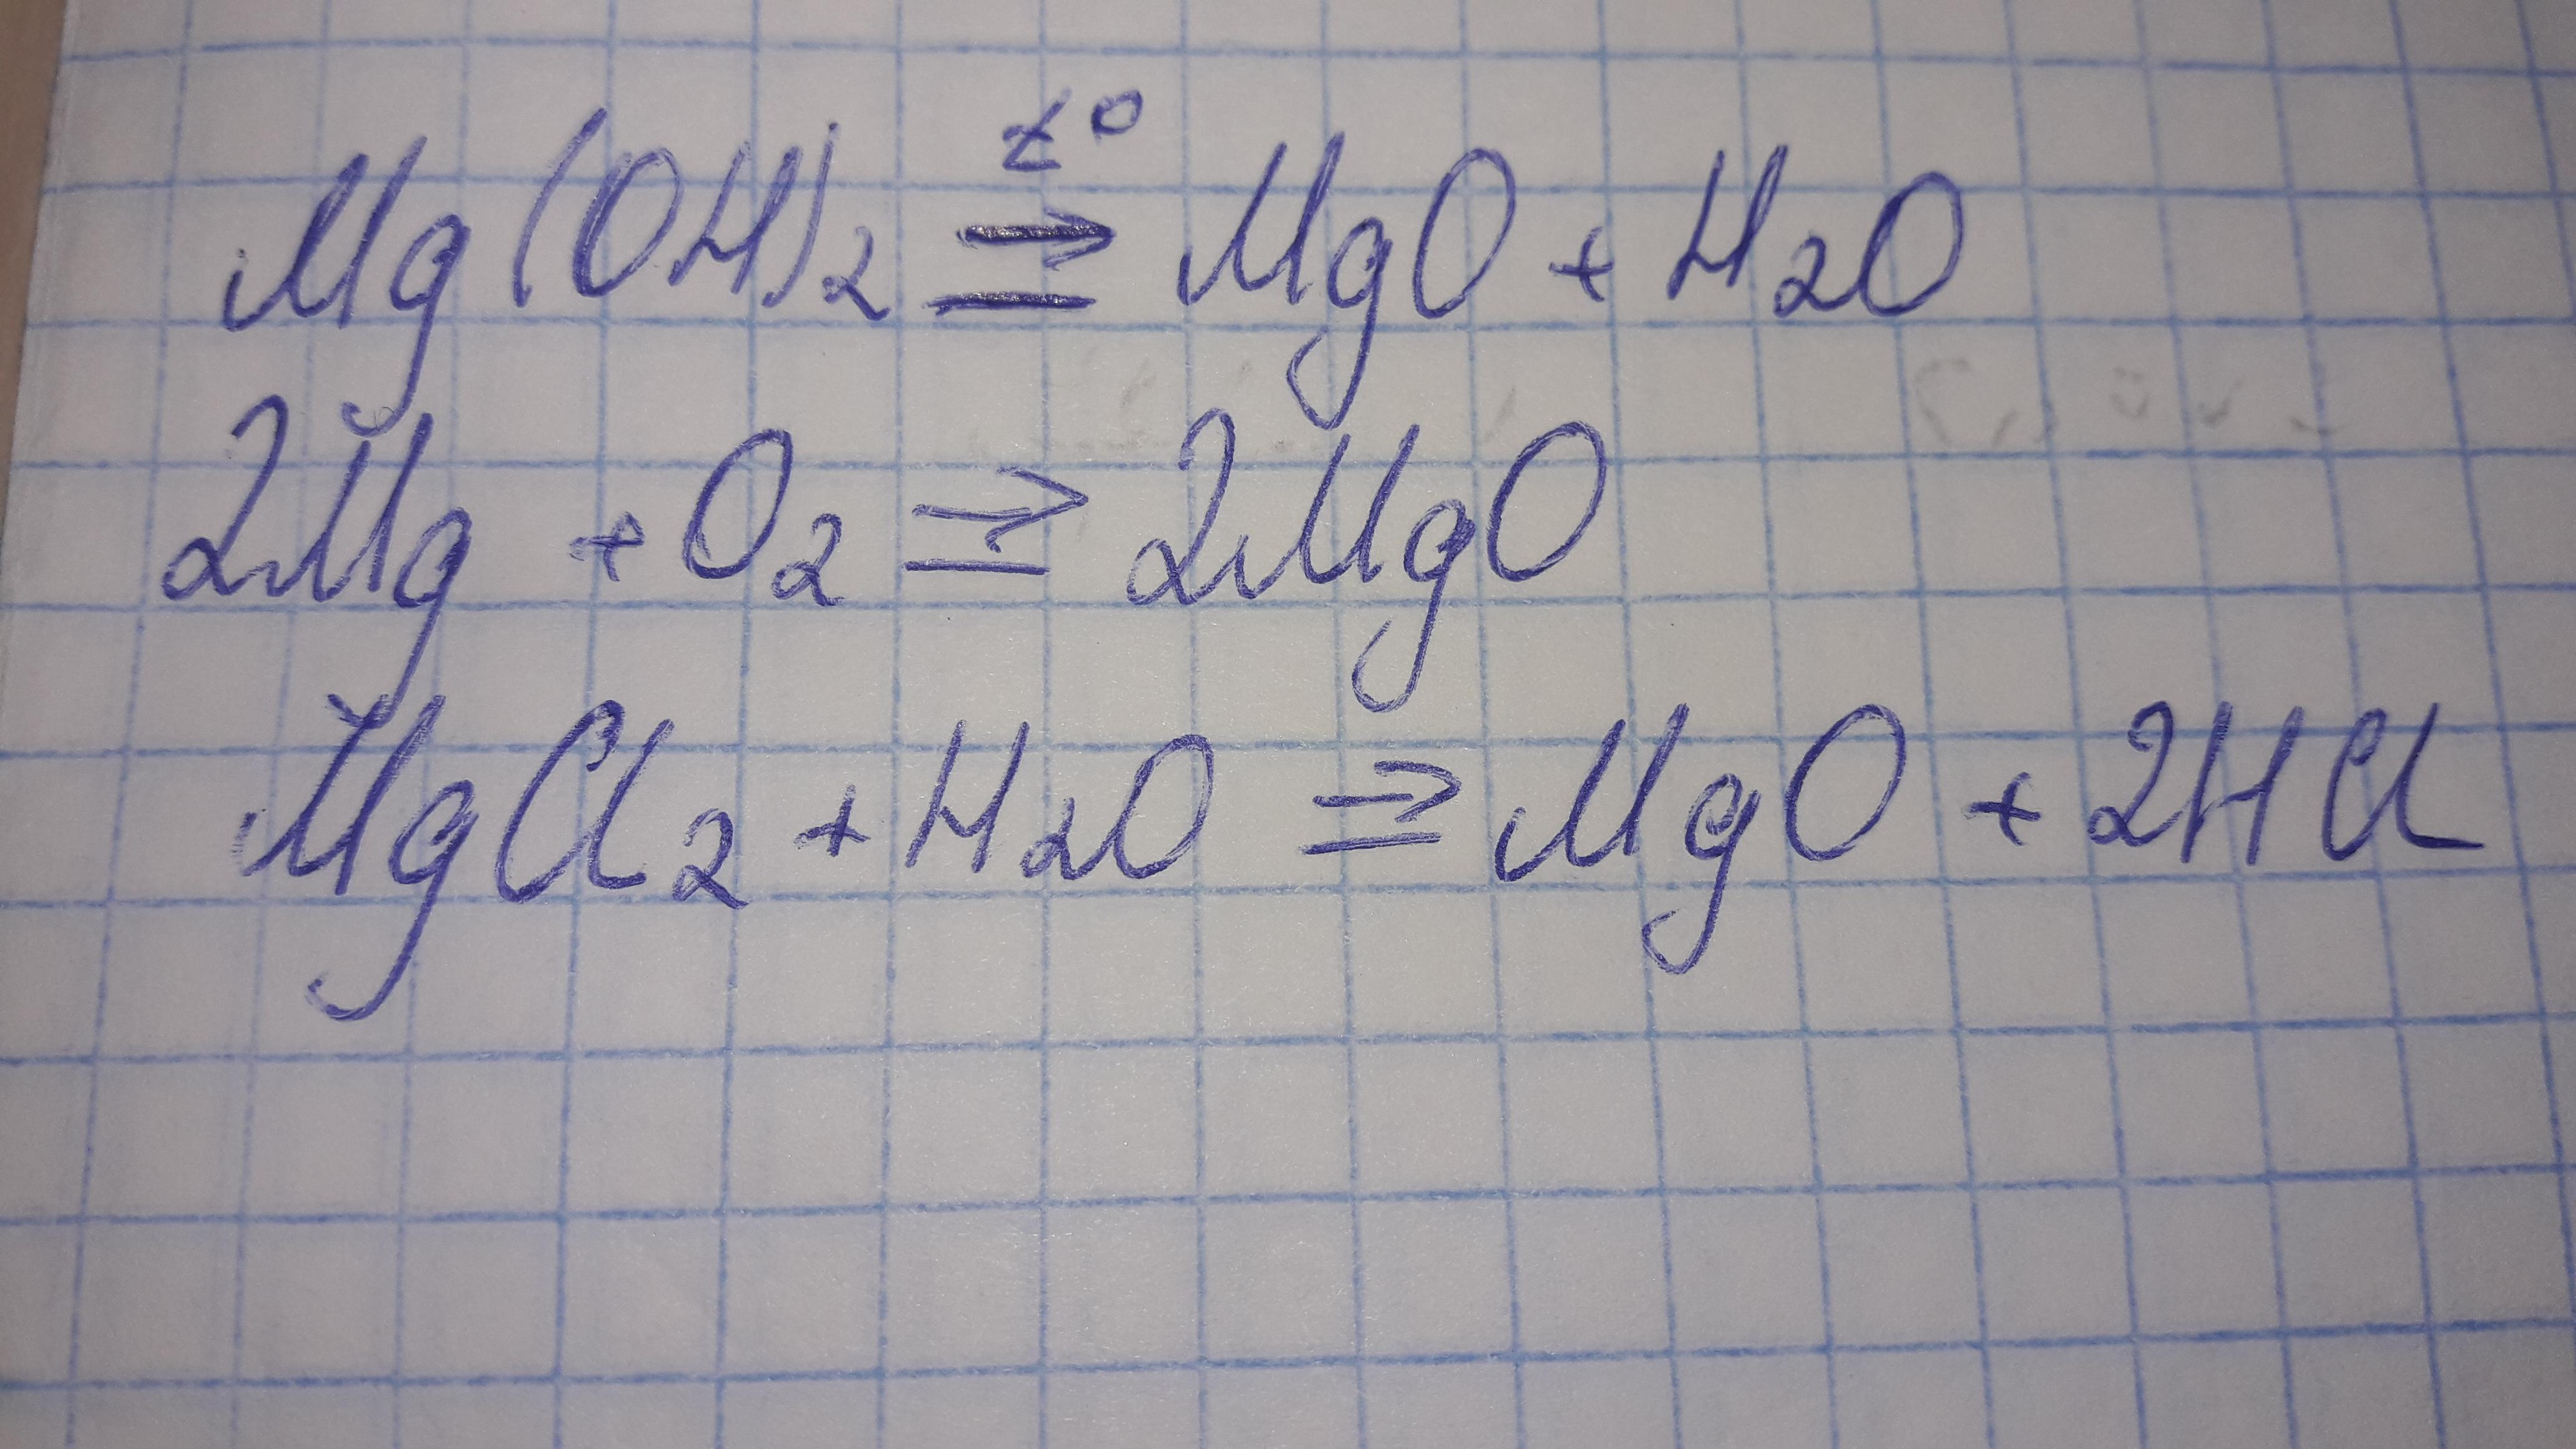 Mg(OH)₂ t° ⇒ MgO + H₂O
2Mg + O₂ ⇒ 2MgO
MgCl₂ + H₂O ⇒ MgO + 2HCl